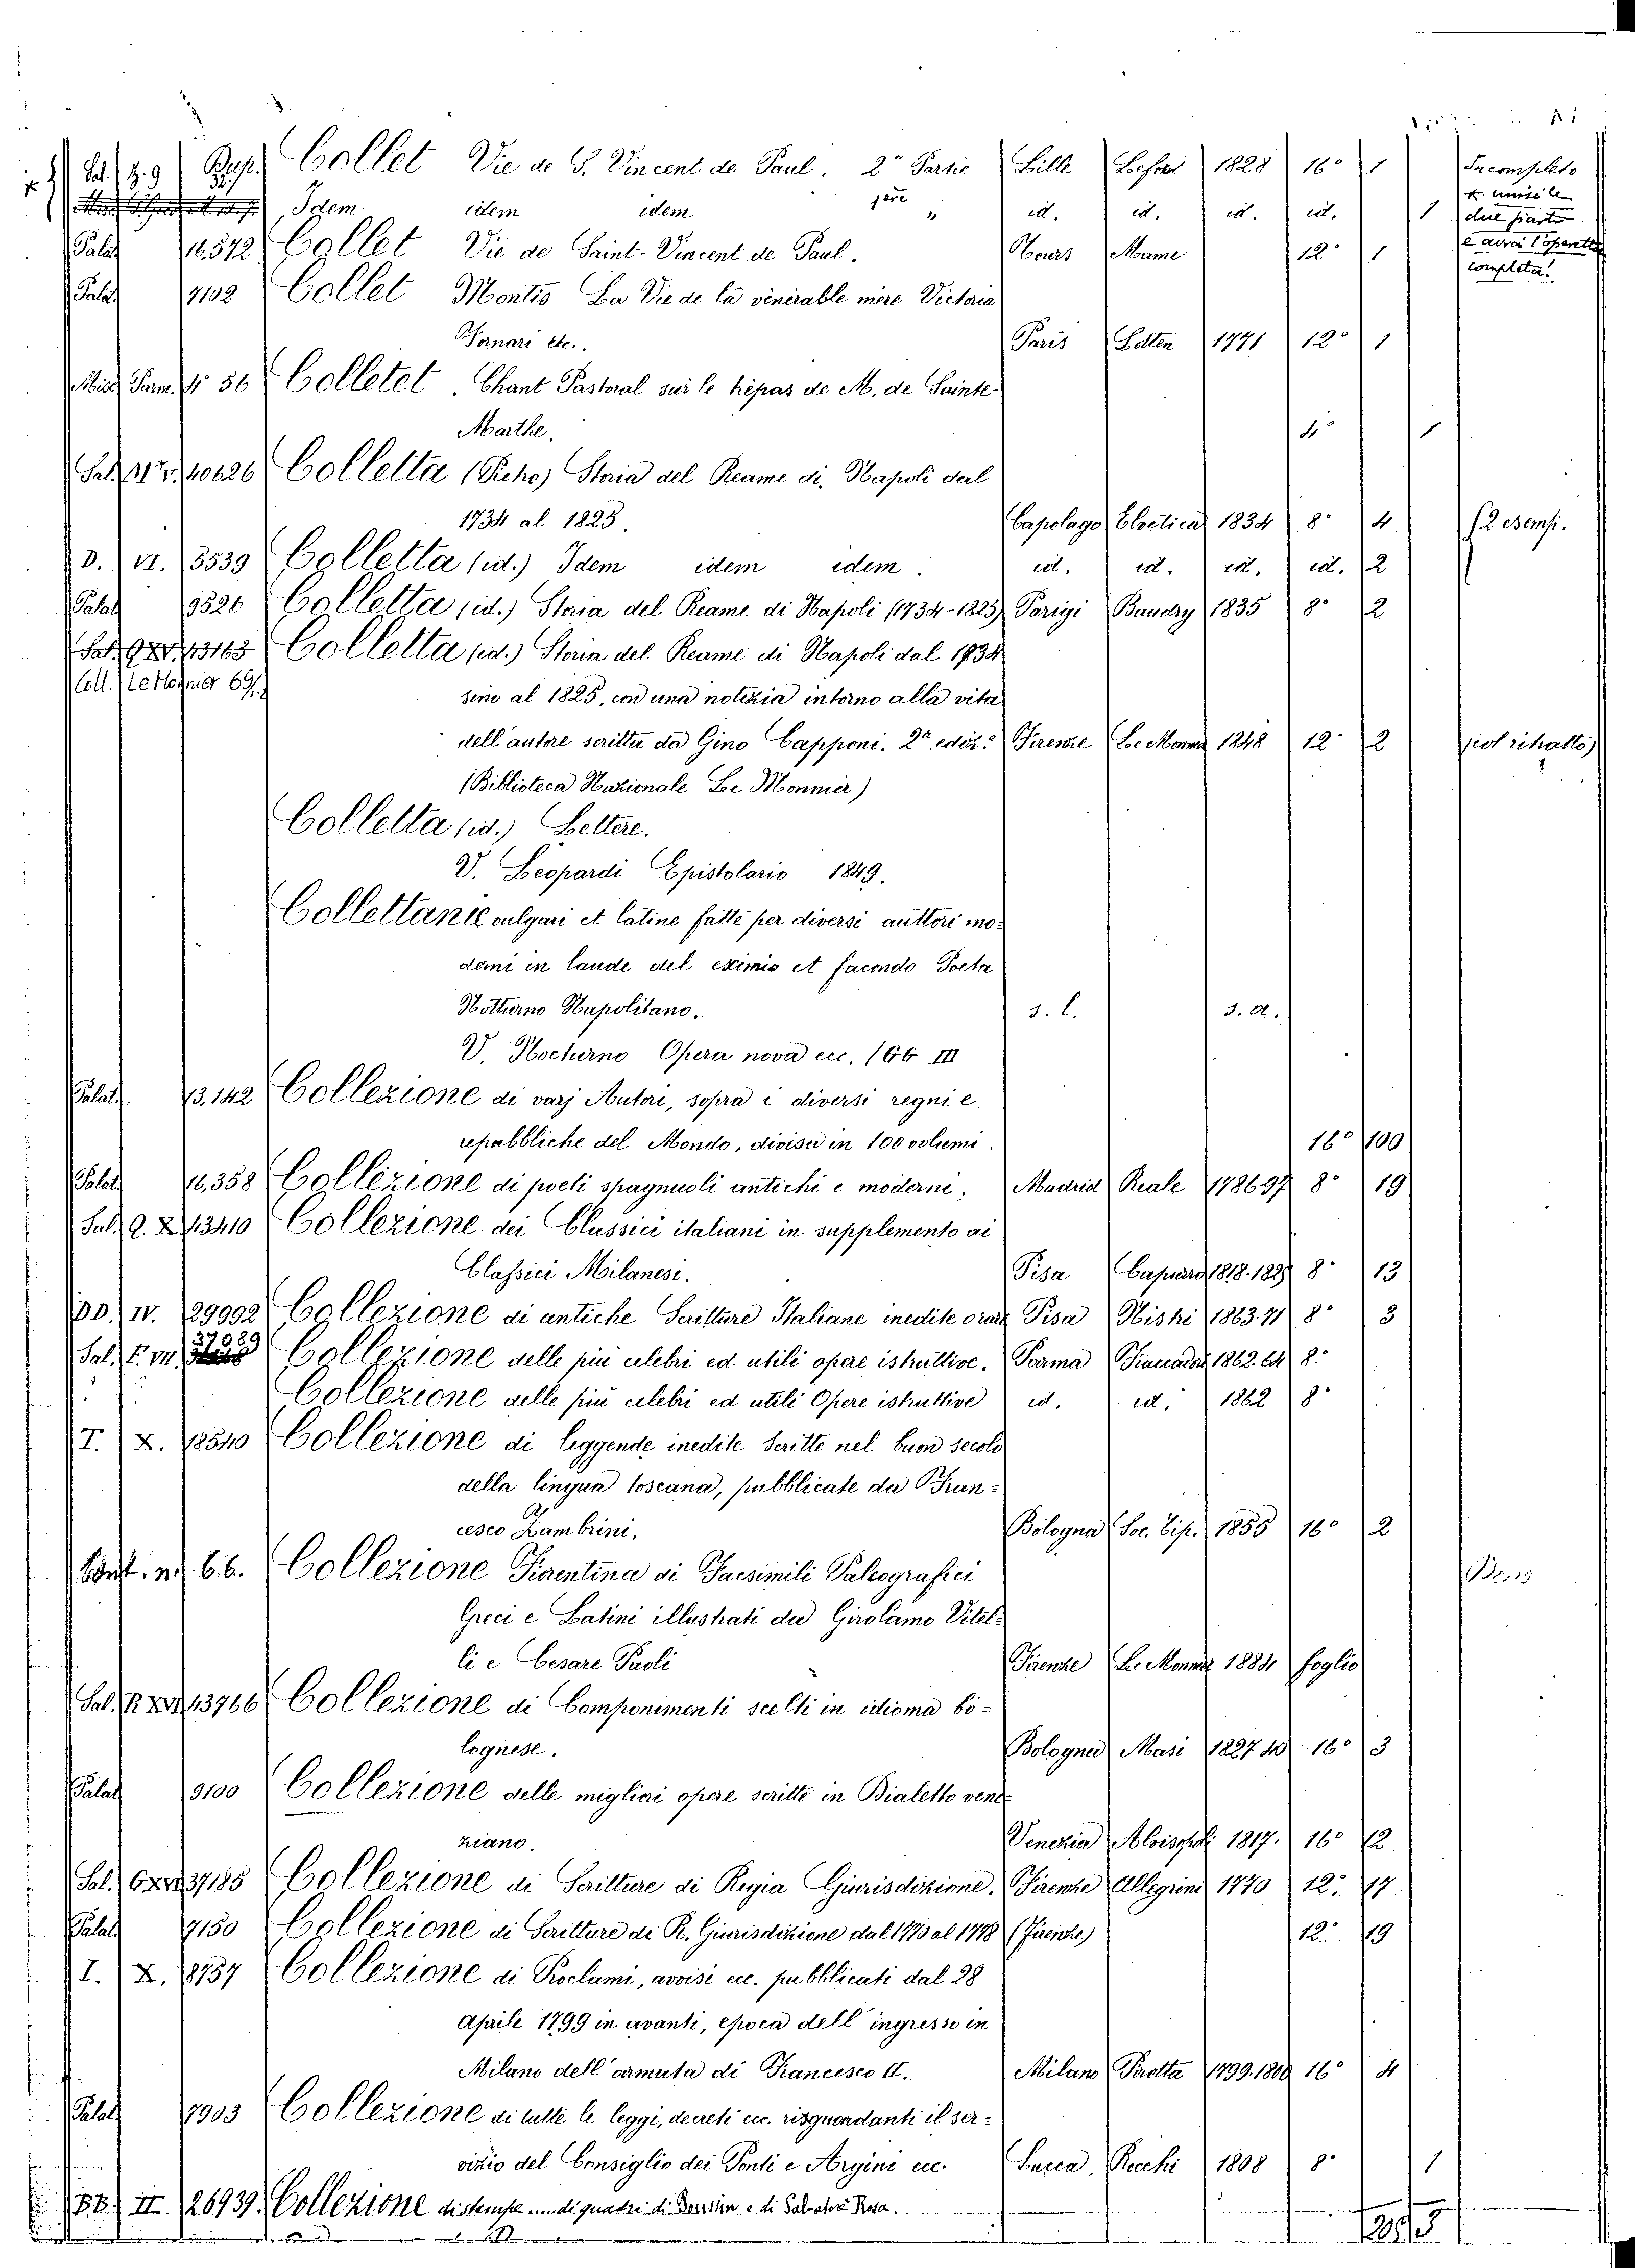 Sal. Z. 9 Collet Vie de S. Vincent de Paul. 2ª Partie Lille Lefort 1828 16º 1 Incompleto
Idem idem idem 1ere " id. id. id. id. 1 due parti
e avrai l'operetta
Palat 16.572 Collet Vie de Saint-Vincent de Paul. Tours Mame 12º 1
completa!
Palat 7102 Collet Montis La Vie de la vénérable mère Victoria
Fornari etc. Paris 1771 12º 1
Misc. Parm. 4º 56 Colletet. Chant Pastoral sur le trépas de M. de Sainte
Marthe. 4º 1
Sal. 10626 Colletta (Pietro) Storia del Reame di Napoli dal
1734 al 1825. Capolago Elvetica 1834 8º 4 2 esemp.
D. VI. 3539 Colletta (id.) Idem idem idem. id. id. id. id. 2
Palat 9526 Colletta (id.) Storia del Reame di Napoli (1734-1825) Parigi Baudry 1835 8º 2
Sal. 13163 Colletta (id.) Storia del Reame di Napoli dal 1734
Coll. Le Monnier 69
sino al 1825, con una notizia intorno alla vita
dell'autore scritta da Gino Capponi. 2ª ediz. Firenze Le Monnier 1848 12º 2 (col ritratto)
(Biblioteca Nazionale Le Monnier)
Colletta (id.) Lettere.
V. Leopardi Epistolario 1849.
Collettanee vulgari et latine fatte per diversi auttori mo-
derni in laude del eximio et facondo Poeta
Notturno Napolitano. s. l. s. a.
V. Nocturno Opera nova ecc. (GG III
Palat. 13.142 Collezione di varj Autori, sopra i diversi regni e
repubbliche del Mondo, divisa in 100 volumi. 16º 100
Palat 16.358 Collezione di poeti spagnuoli antichi e moderni. Madrid Reale 1786-97 8º 19
Sal. Q. X 13410 Collezione dei Classici italiani in supplemento ai
Classici Milanesi. Pisa Capurro 8º 13
DD. IV. 29992 Collezione di antiche Scritture Italiane inedite o rare Pisa Nistri 1863.71 8º 3
Sal. F. VII 37089 Collezione delle più celebri ed utili opere istruttive. Parma Fiaccadori 1862.64 8º
Collezione delle più celebri ed utili Opere istruttive id. id. 1862 8º
T. X. 18540 Collezione di leggende inedite scritte nel buon secolo
della lingua toscana, pubblicate da Fran-
cesco Zambrini. Bologna Soc. Tip. 1855 16º 2
66. Collezione Fiorentina di Facsimili Paleografici
Greci e Latini illustrati da Girolamo Vitel-
li e Cesare Paoli Firenze Le Monnier 1884 foglio
Sal. 13766 Collezione di Componimenti scelti in idioma bo-
lognese. Bologna Masi 1827 40 16º 3
Palat 9100 Collezione delle migliori opere scritte in Dialetto vene-
ziano. Venezia Alvisopoli 1817. 16º 12
Sal. 37185 Collezione di Scritture di Regia Giurisdizione. Firenze Allegrini 1770 12º 17
Palat 7150 Collezione di Scritture di R. Giurisdizione dal 1770 al 1778 (Firenze) 12º 19
I. X. 8757 Collezione di Proclami, avvisi ecc. pubblicati dal 28
Aprile 1799 in avanti, epoca dell'ingresso in
Milano dell'armata di Francesco II. Milano Pirotta 1799.1800 16º 4
Palat 7903 Collezione di tutte le leggi, decreti ecc. risguardanti il ser-
vizio del Consiglio dei Ponti e Argini ecc. Lucca Rocchi 1808 8º 1
BB. II 26939. Collezione di stampe .... di quadri di Poussin e di Salvator Rosa.